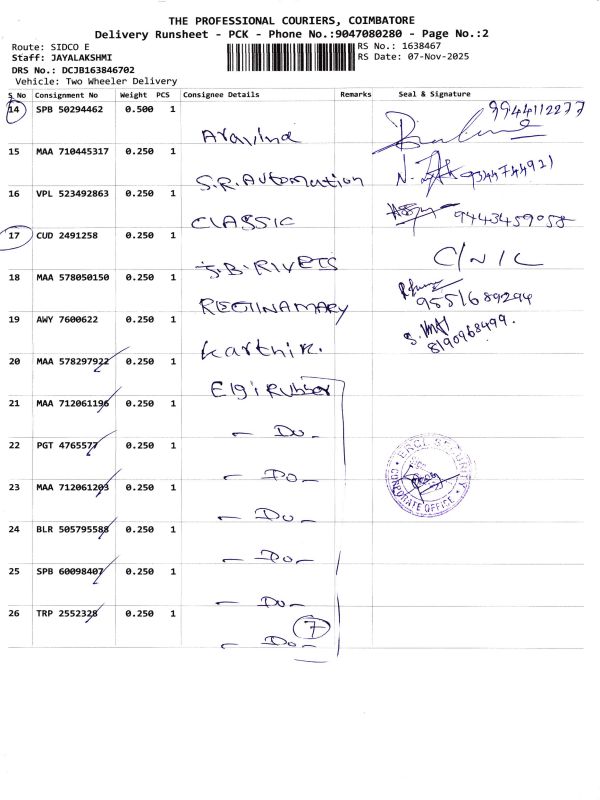 THE PROFESSIONAL COURIERS, COIMBATORE
Delivery Runsheet - PCK - Phone No.:9047080280 - Page No.:2
Route: SIDCO E
RS No.: 1638467
Staff: JAYALAKSHMI
RS Date: 07-Nov-2025
DRS No.: DCJB163846702
Vehicle: Two Wheeler Delivery
S No Consignment No Weight PCS Consignee Details Remarks Seal & Signature
14 SPB 50294462 0.500 1 Aravind 9944112277
15 MAA 710445317 0.250 1 S.R. Automation 9344744921
16 VPL 523492863 0.250 1 CLASSIC 9443459058
17 CUD 2491258 0.250 1 S.B. RIVETS C/N/C
18 MAA 578050150 0.250 1 REGINAMARY 9551689294
19 AWY 7600622 0.250 1 Karthik. 8190968499.
20 MAA 578297922 0.250 1 Elgi Rubber
21 MAA 712061196 0.250 1 - Do -
22 PGT 4765577 0.250 1 - Do -
23 MAA 712061203 0.250 1 - Do -
24 BLR 505795588 0.250 1 - Do -
25 SPB 60098407 0.250 1 - Do -
26 TRP 2552328 0.250 1 - Do -
7
SECURITY
CORPORATE OFFICE